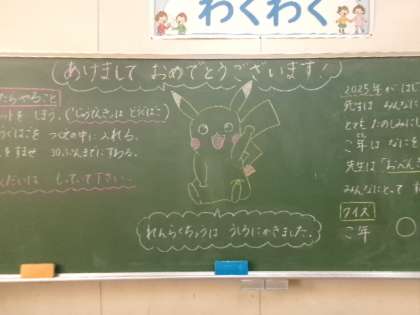 わくわく
あけまして おめでとうございます!
たらやること
ットを しまう。(「じゅうたん」は どうぐばこ)
うぐばこを つくえの中に 入れる。
をすませ 30ぷんまでにすわる。
くだいは もっていて下さい
れんらくちょうは うしろにかきました。
2025年が はじ
先生は みんなに
とても たのしみにし
こ年は なにを
先生は 「おべん
みんなにとって
クイズ
こ年 ○